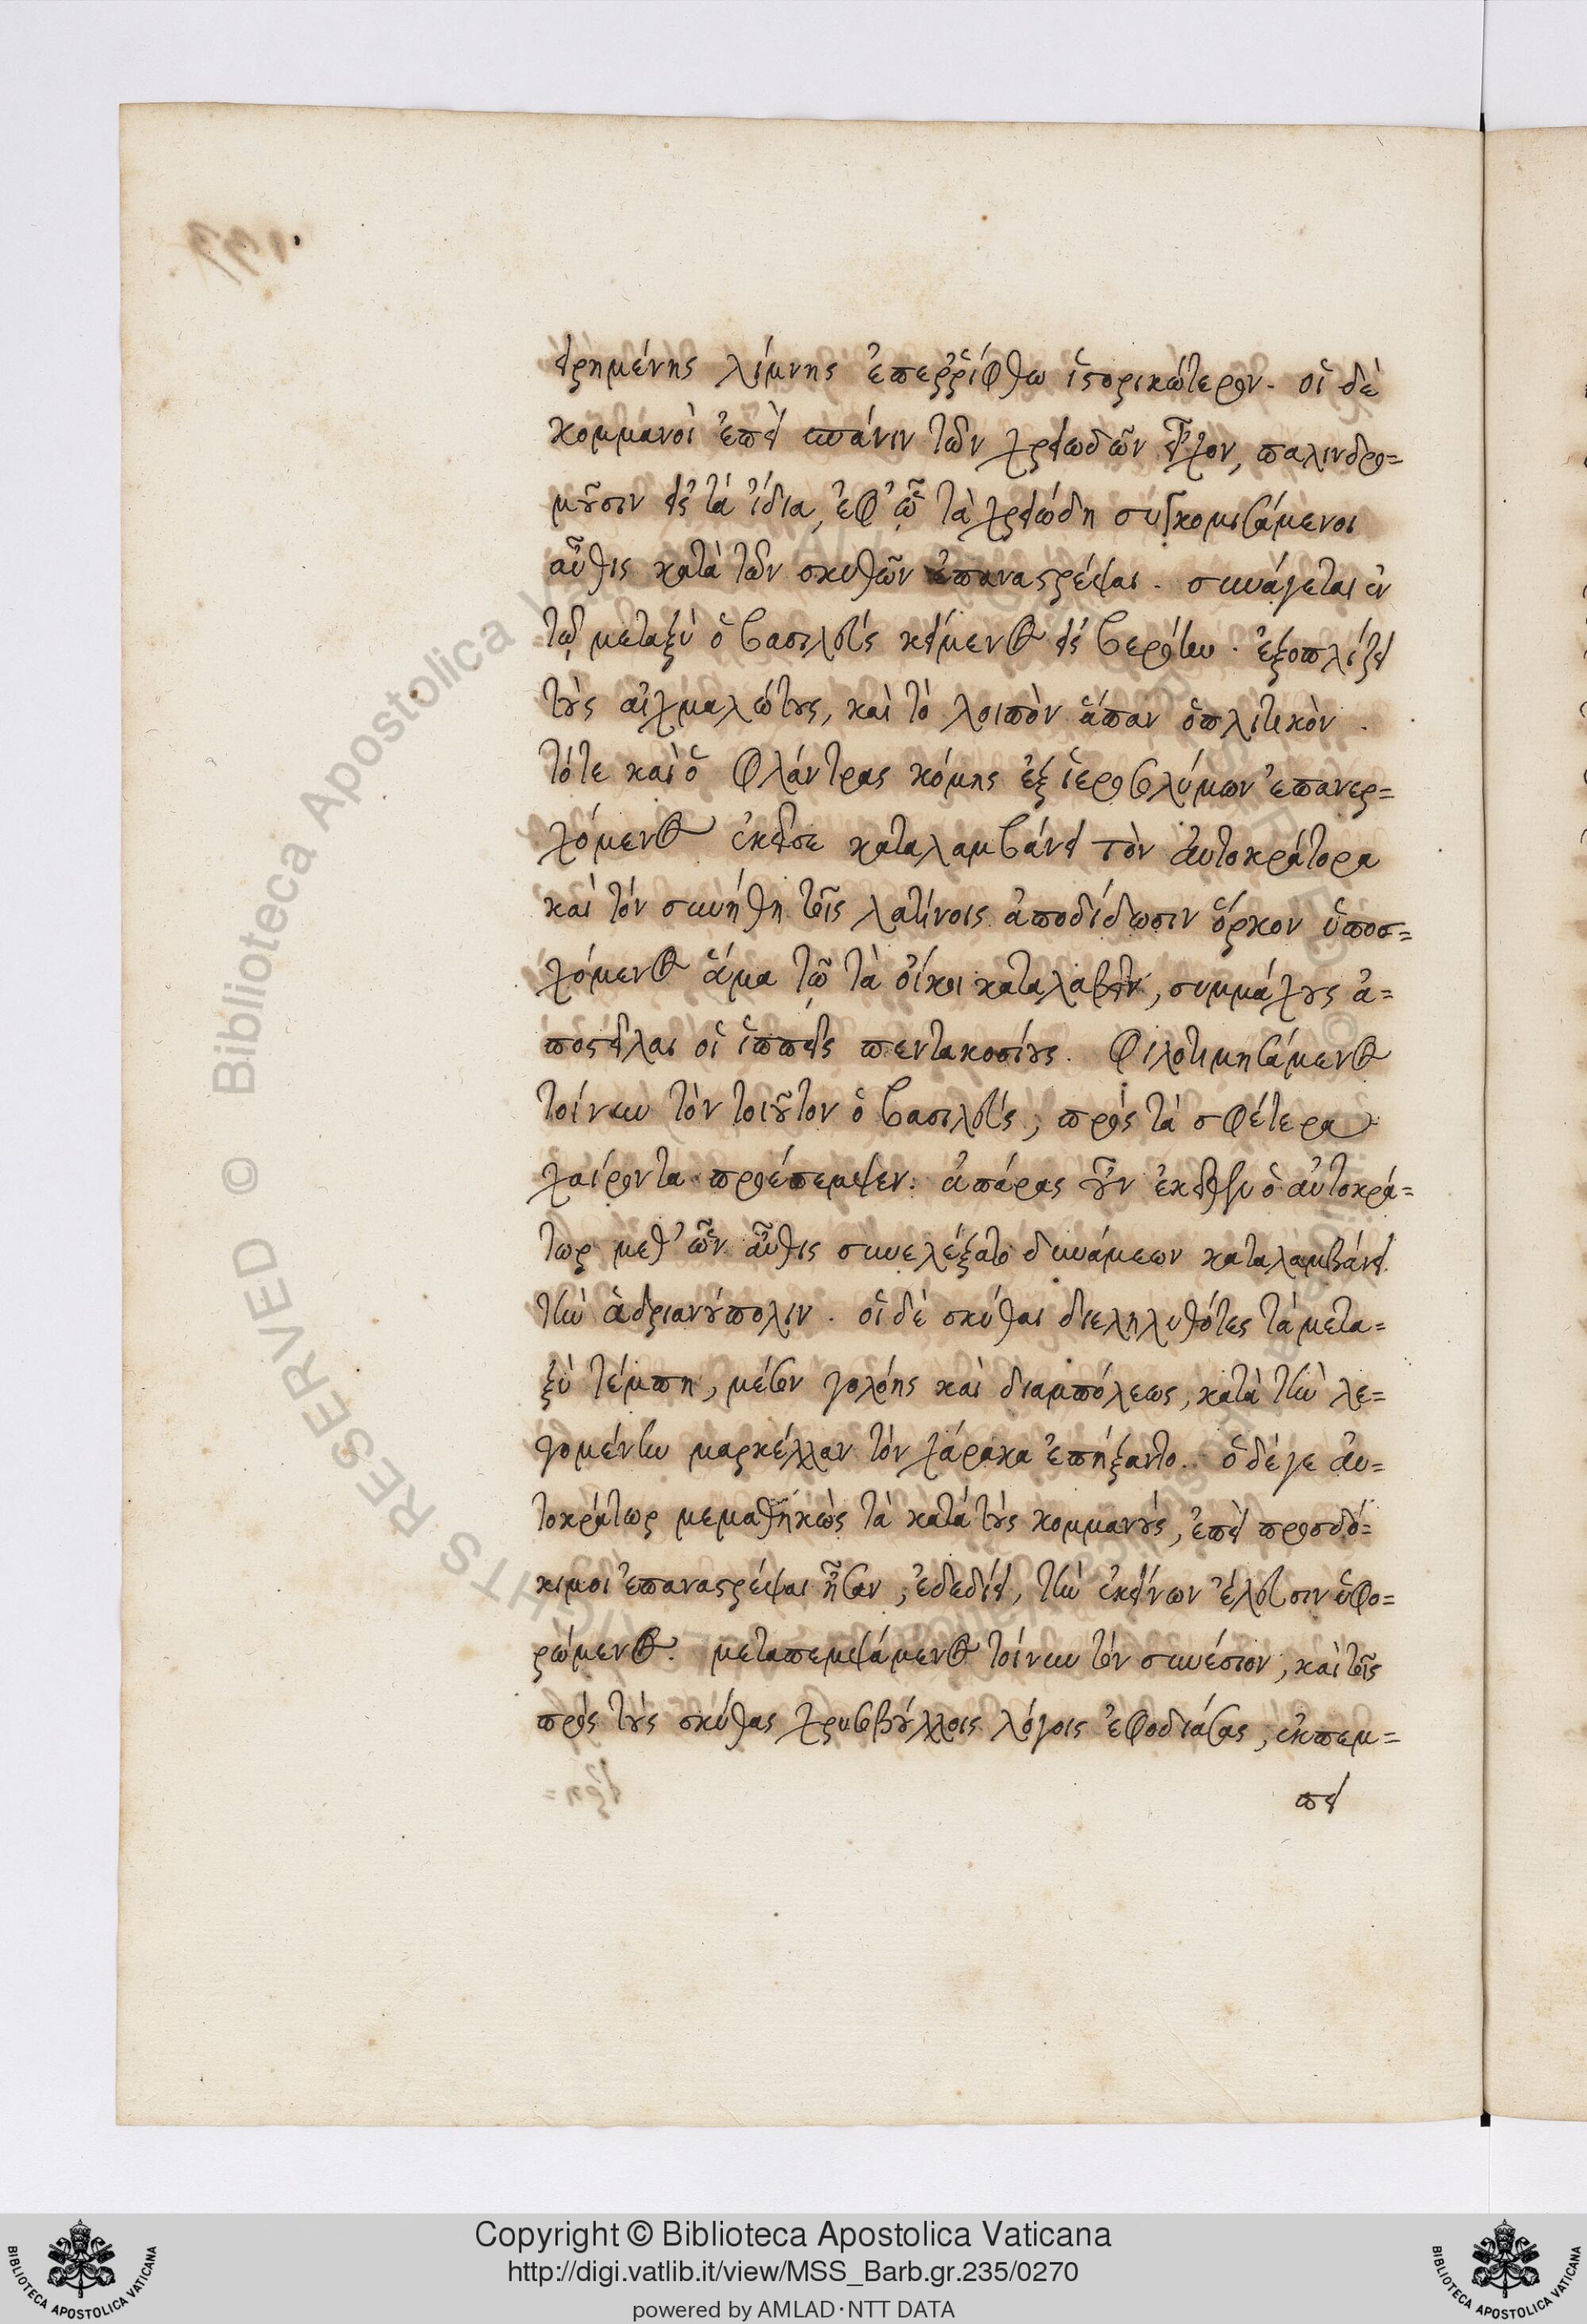 εἰρημένης λίμνης ἐπεῤῥίφθω ἱστορικώτερον. οἱ δὲ
κομμανοὶ ἐπεὶ σπάνιν τῶν χρειωδῶν εἶχον, παλινδρο=
μοῦσιν εἰς τὰ ἴδια, ἐφ' ᾧ τὰ χρειώδη συγκομισάμενοι
αὖθις κατὰ τῶν σκυθῶν ἐπαναστρέψαι. συνάγεται ἐν
τῷ μεταξὺ ὁ βασιλεὺς κείμενος εἰς βερόην. ἐξοπλίζει
τοὺς αἰχμαλώτους, καὶ τὸ λοιπὸν ἅπαν ὁπλιτικὸν.
τότε καὶ ὁ Φλάντρας κόμης ἐξ ἱεροσολύμων ἐπανερ=
χόμενος ἐκεῖσε καταλαμβάνει τὸν αὐτοκράτορα
καὶ τὸν συνήθη τοῖς λατίνοις ἀποδίδωσιν ὅρκον ὑποσ=
χόμενος ἅμα τῷ τὰ οἴκοι καταλαβεῖν, συμμάχους ἀ=
ποστεῖλαι οἱ ἱππεῖς πεντακοσίους. Φιλοτιμησάμενος
τοίνυν τὸν τοιοῦτον ὁ βασιλεὺς, πρὸς τὰ σφέτερα
χαίροντα προέπεμψεν. ἀπάρας οὖν ἐκεῖθεν ὁ αὐτοκρά=
τωρ μεθ' ὧν αὖθις συνελέξατο δυνάμεων καταλαμβάνει
τὴν ἀδριανούπολιν. οἱ δὲ σκύθαι διεληλυθότες τὰ μετα=
ξὺ τέμπη, μέσον γολόης καὶ διαμπόλεως, κατὰ τὴν λε=
γομένην μαρκέλλαν τὸν χάρακα ἐπήξαντο. ὁ δέγε αὐ=
τοκράτωρ μεμαθηκὼς τὰ κατὰ τοὺς κομμανοὺς, ἐπεὶ προσδό=
κιμοι ἐπαναστρέψαι ἦσαν, ἐδεδίει, τὴν ἐκείνων ἔλευσιν ὑφο=
ρώμενος. μεταπεμψάμενος τοίνυν τὸν συνέσιον, καὶ τοῖς
πρὸς τοὺς σκύθας χρυσοβούλλοις λόγοις ἐφοδιάσας, ἐκπεμ=
πει
Copyright © Biblioteca Apostolica Vaticana
http://digi.vatlib.it/view/MSS_Barb.gr.235/0270
powered by AMLAD・NTT DATA